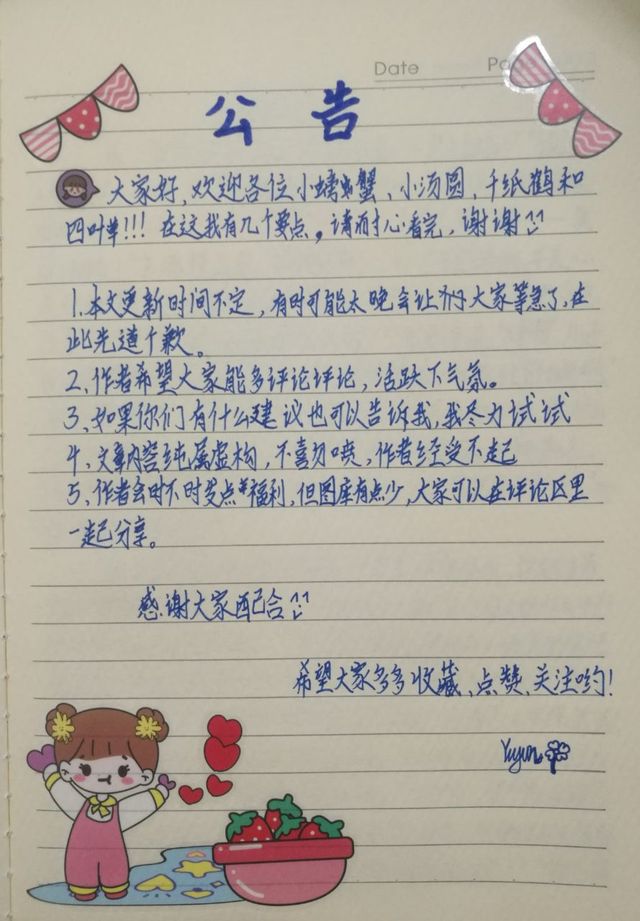 Date
公告
大家好,欢迎各位小螃蟹、小汤圆、千纸鹤和
四叶草!!!在这我有几个要点。请耐心看完,谢谢
1.本文更新时间不定,有时可能太晚会让大家等急了,在
此先道个歉。
2、作者希望大家能多评论评论,活跃下气氛。
3、如果你们有什么建议也可以告诉我,我尽力试试
4、文章内容纯属虚构,不喜勿喷,作者经受不起
5、作者会时不时发点福利,但图库有点少,大家可以在评论区里
一起分享。
感谢大家配合
希望大家多多收藏、点赞、关注哟!
Yuyun